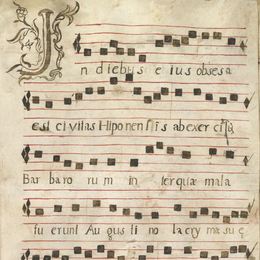 In diebus eius obsesa
est civitas Hiponensis ab exercitu
Barbarorum interquæ mala
fuerunt Augustino lacrymæ suę